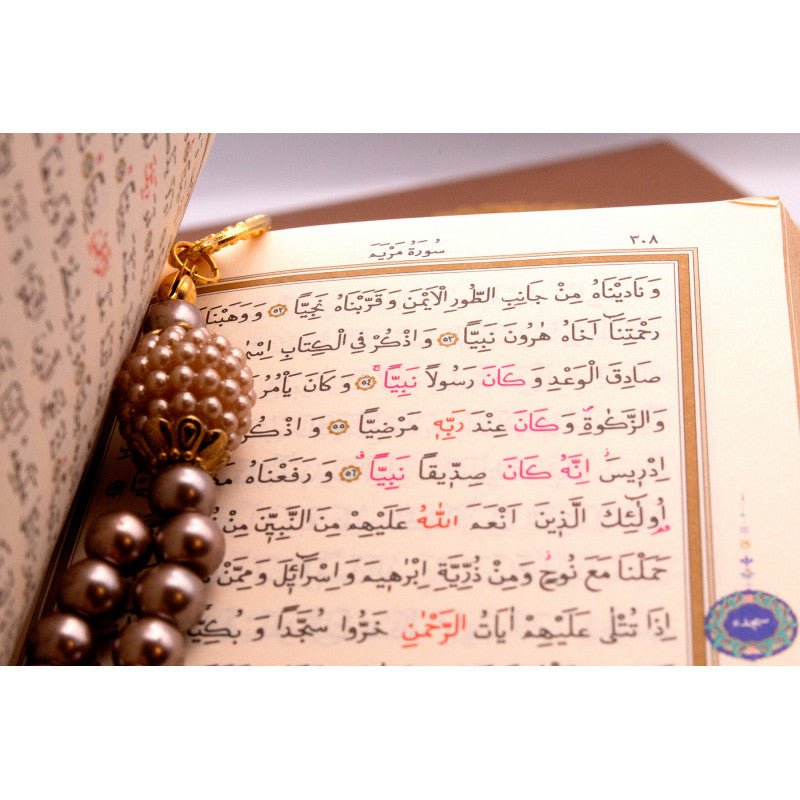 سُورَةُ مَرْيَمَ
٣٠٨
وَ نَادَيْنَاهُ مِنْ جَانِبِ الطُّورِ الْاَيْمَنِ وَ قَرَّبْنَاهُ نَجِيًّا ٥٢ وَ وَهَبْنَا
رَحْمَتِنَا اَخَاهُ هٰرُونَ نَبِيًّا ٥٣ وَ اذْكُرْ فِى الْكِتَابِ
صَادِقَ الْوَعْدِ وَ كَانَ رَسُولًا نَبِيًّا ٥٤ وَ كَانَ يَأْمُرُ
وَ الزَّكٰوةِ وَ كَانَ عِنْدَ رَبِّهٖ مَرْضِيًّا ٥٥ وَ اذْكُرْ
اِدْرِيسَ اِنَّهُ كَانَ صِدّٖيقًا نَبِيًّا ٥٦ وَ رَفَعْنَاهُ
اُولٰٓئِكَ الَّذٖينَ اَنْعَمَ اللّٰهُ عَلَيْهِمْ مِنَ النَّبِيّٖنَ مِنْ
حَمَلْنَا مَعَ نُوحٍ وَ مِنْ ذُرِّيَّةِ اِبْرٰهٖيمَ وَ اِسْرَٓائٖلَ وَ مِمَّنْ
اِذَا تُتْلٰى عَلَيْهِمْ اٰيَاتُ الرَّحْمٰنِ خَرُّوا سُجَّدًا وَ بُكِيًّا
سجده